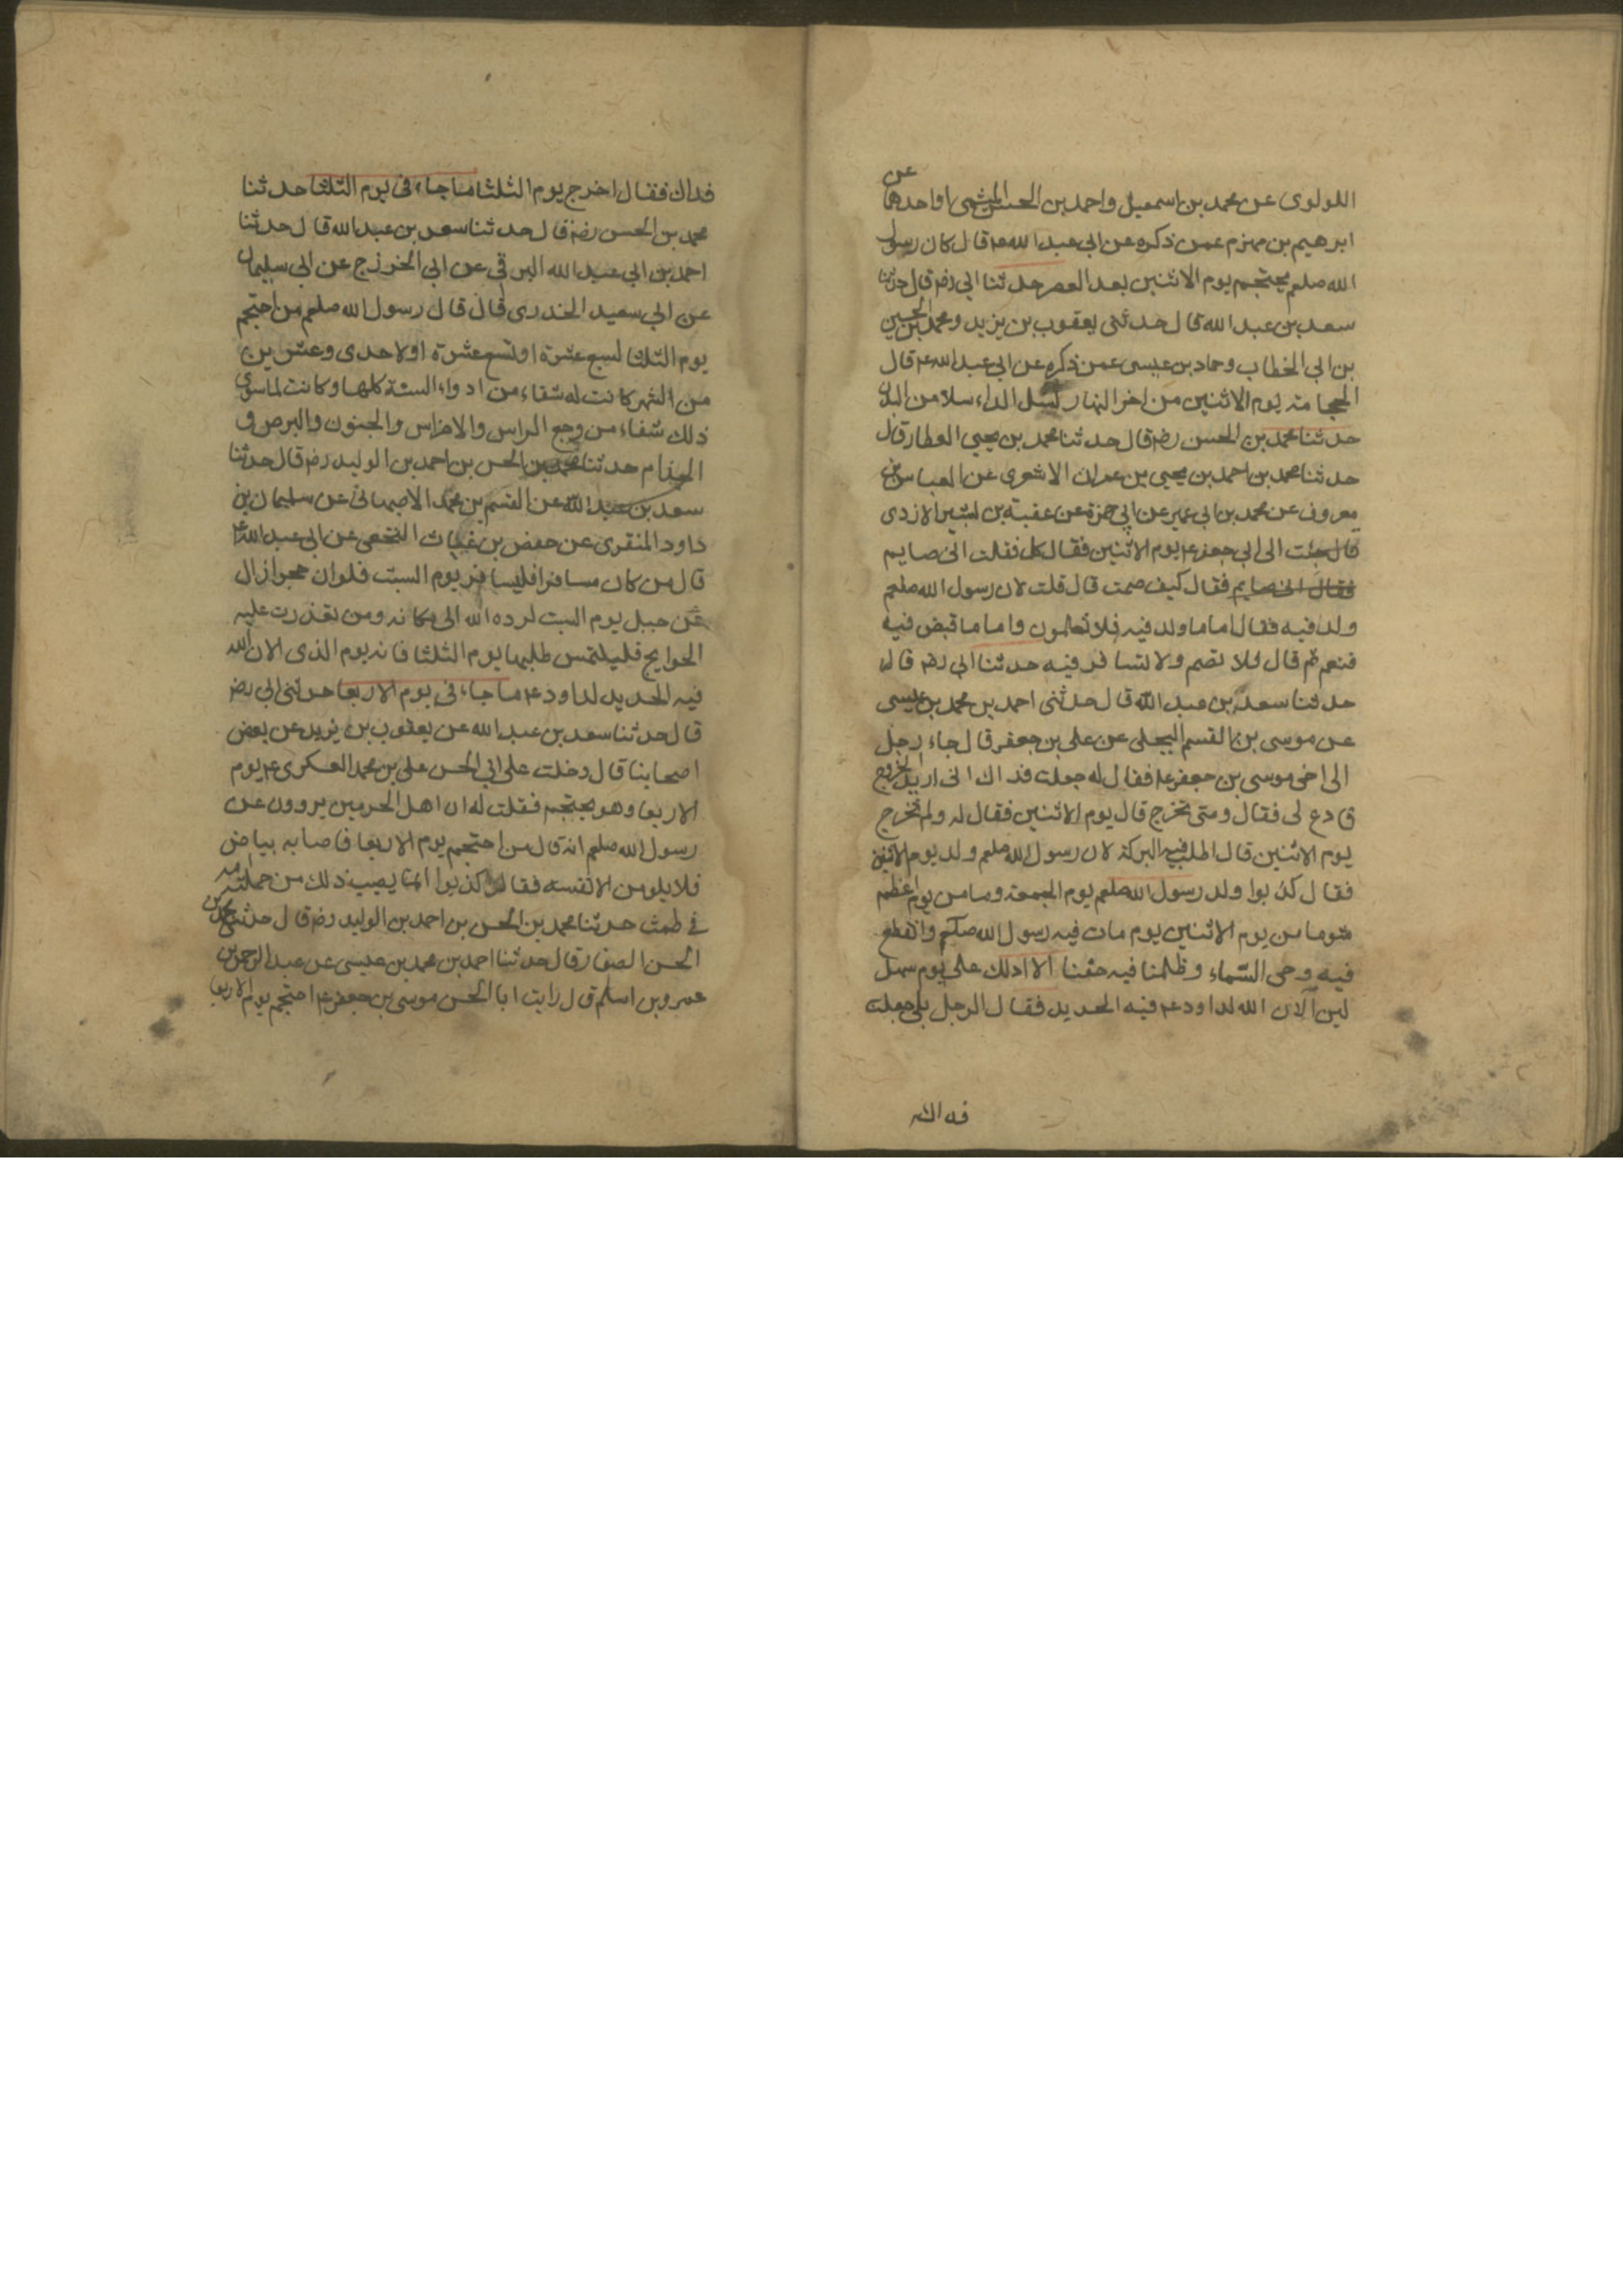 اللولوى عن محمد بن اسمعيل واحمد بن الحسن الميثمى او احدهما عن
ابرهيم بن مهزم عمن ذكره عن ابى عبد الله ع قال كان رسول
الله صلعم يحتجم يوم الاثنين بعد العصر حدثنا ابى رض قال حدثنا
سعد بن عبد الله قال حدثنى يعقوب بن يزيد ومحمد بن الحسين
بن ابى الخطاب وحماد بن عيسى عمن ذكره عن ابى عبد الله ع قال
الحجامة يوم الاثنين من اخر النهار تسل الداء سلا من البدن
حدثنا محمد بن الحسن رض قال حدثنا محمد بن يحيى العطار قال
حدثنا محمد بن احمد بن يحيى بن عمران الاشعرى عن العباس بن
معروف عن محمد بن ابى عمير عن ابى حمزة عن عقبة بن بشير الازدى
قال جئت الى ابى جعفر ع يوم الاثنين فقال كل فقلت انى صايم
فقال انى صايم فقال كيف صمت قال قلت لان رسول الله صلعم
ولد فيه فقال اما ما ولد فيه فلا تعلمون واما ما قبض فيه
فنعم ثم قال فلا تصم ولا تسافر فيه حدثنا ابى رض قال
حدثنا سعد بن عبد الله قال حدثنى احمد بن محمد بن عيسى
عن موسى بن القسم البجلى عن على بن جعفر قال جاء رجل
الى اخى موسى بن جعفر ع فقال له جعلت فداك انى اريد الخروج
فادع لى فقال ومتى تخرج قال يوم الاثنين فقال له ولم تخرج
يوم الاثنين قال اطلب فيه البركة لان رسول الله صلعم ولد يوم الاثنين
فقال كذبوا ولد رسول الله صلعم يوم الجمعة وما من يوم اعظم
شوما من يوم الاثنين يوم مات فيه رسول الله صلعم وانقطع
فيه وحى السماء وظلمنا فيه حقنا الا ادلك على يوم سهل
لين الان الله لداود ع فيه الحديد فقال الرجل بلى جعلت
فداك
فداك فقال اخرج يوم الثلثا ما جاء فى يوم الثلثا حدثنا
محمد بن الحسن رض قال حدثنا سعد بن عبد الله قال حدثنا
احمد بن ابى عبد الله البرقى عن ابى الخزرج عن ابى سليمان
عن ابى سعيد الخدرى قال قال رسول الله صلعم من احتجم
يوم الثلثا لسبع عشرة او تسع عشرة او لاحدى وعشرين
من الشهر كانت له شفاء من ادواء السنة كلها وكانت لما سوى
ذلك شفاء من وجع الراس والاضراس والجنون والبرص و
الجذام حدثنا محمد بن الحسن بن احمد بن الوليد رض قال حدثنا
سعد بن عبد الله عن القسم بن محمد الاصبهانى عن سليمان بن
داود المنقرى عن حفص بن غياث النخعى عن ابى عبد الله ع
قال من كان مسافرا فليسافر يوم السبت فلو ان حجرا زال
عن جبل يوم السبت لرده الله الى مكانه ومن تعذرت عليه
الحوايج فليلتمس طلبها يوم الثلثا فانه يوم الذى الان الله
فيه الحديد لداود ع ما جاء فى يوم الاربعا حدثنى ابى رض
قال حدثنا سعد بن عبد الله عن يعقوب بن يزيد عن بعض
اصحابنا قال دخلت على ابى الحسن على بن محمد العسكرى ع يوم
الاربعا وهو يحتجم فقلت له ان اهل الحرمين يروون عن
رسول الله صلعم انه قال من احتجم يوم الاربعا فاصابه بياض
فلا يلومن الا نفسه فقال كذبوا انما يصيب ذلك من حملته امه
فى طمث حدثنا محمد بن الحسن بن احمد بن الوليد رض قال حدثنا محمد بن
الحسن الصفار قال حدثنا احمد بن محمد بن عيسى عن عبد الرحمن بن
عمرو بن اسلم قال رايت ابا الحسن موسى بن جعفر ع احتجم يوم الاربعا